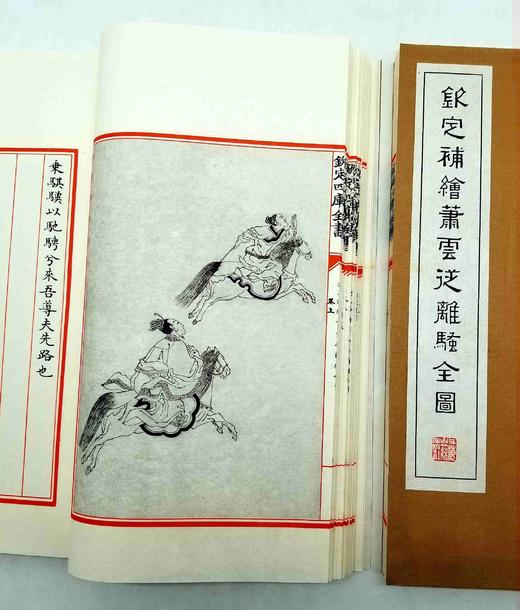 欽定補繪蕭雲從離騷全圖
欽定四庫全書
卷上
乘騏驥以馳騁兮來吾導夫先路也